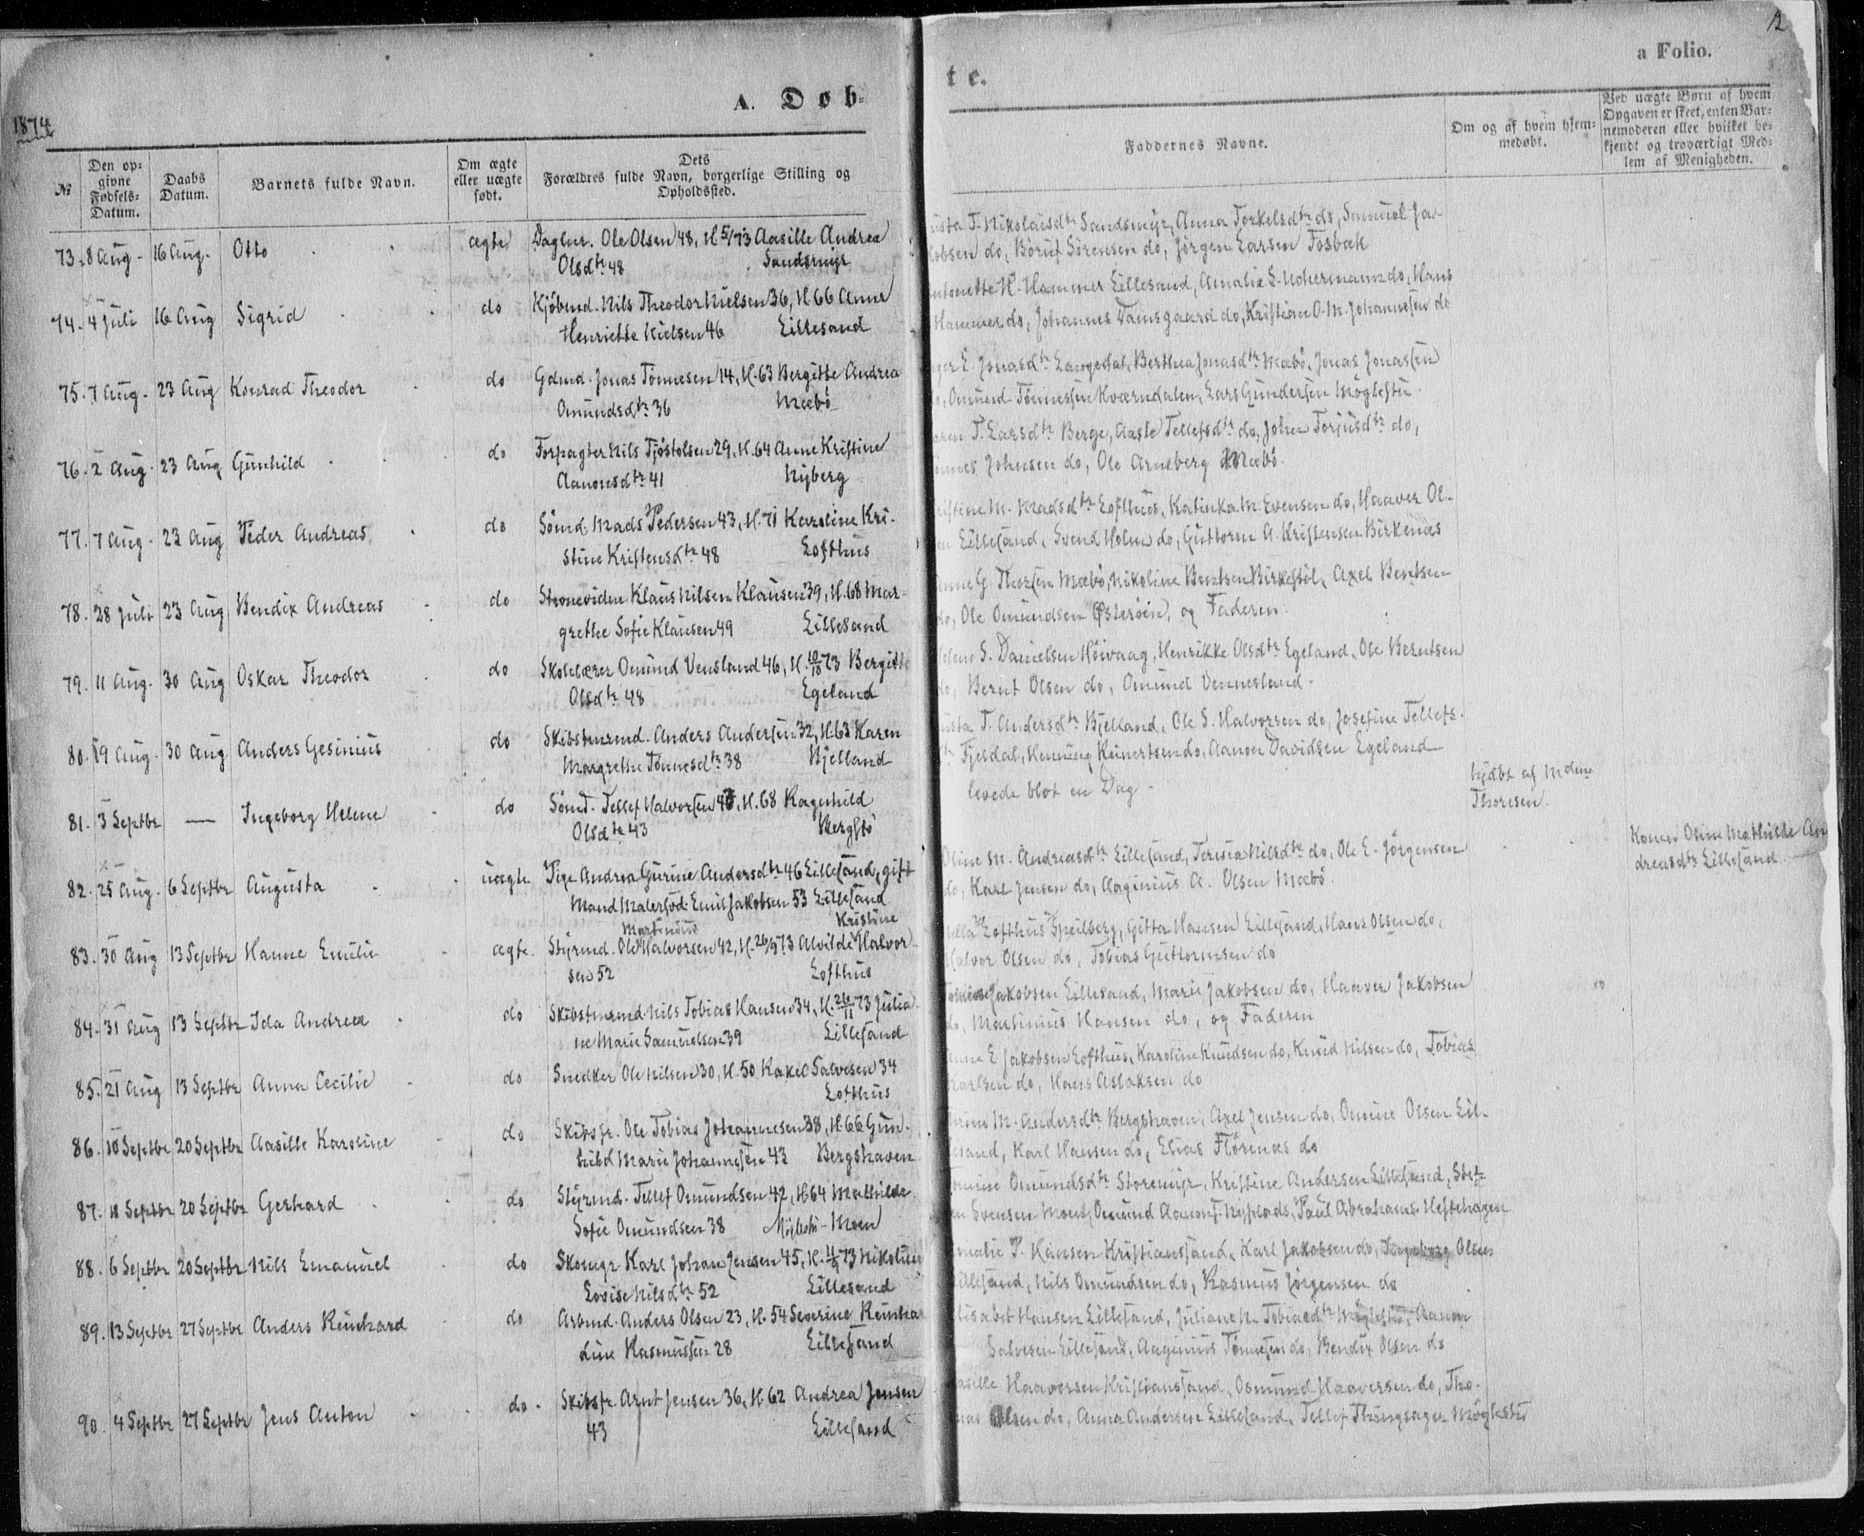 12
a Folio.
A. Døb-
te.
1874
№
Den op-
givne
Fødsels-
Datum.
Daabs
Datum.
Barnets fulde Navn.
Om ægte
eller uægte
født.
Dets
Forældres fulde Navn, borgerlige Stilling og
Opholdssted.
Faddernes Navne.
Om og af hvem hjem-
medøbt.
Ved uægte Børn af hvem
Opgaven er skeet, enten Bar-
nemoderen eller hvilket be-
kjendt og troværdigt Med-
lem af Menigheden.
73. 8 Aug. 16 Aug. Otto ægte Dagbr. Ole Olsen 48, H 5/ 73 Aasille Andrea
Olsdtr 48 Sandsmyr
T. Nikolaisdtr Sandsmyr, Anna Torkelsdtr do, Samuel Ja-
kobsen do, Børuf Sørensen do, Jørgen Larsen Fosbæk
74. 4 Juli 16 Aug Sigrid do Kjøbmd. Nils Theodor Nielsen 36, H. 66 Anne
Henriette Nielsen 46 Lillesand
H. Hammer Lillesand, Amalie S. do, Hans
Hammer do, Johannes Damsgaard do, Kristian O. M. Johannesen do
75. 7 Aug. 23 Aug Konrad Theodor do Gdmd. Jonas Tønnesen 14, H. 63 Bergitte Andrea
Omundsdtr 36 Mæbø
E. Jonasdtr Langedal, Berthea Jonasdtr Mæbø, Jonas Jonassen
do, Omund Tønnessen Kværndalen, Lars Gundersen Møglestu
76. 2 Aug. 23 Aug Gunhild do Forpagter Nils Tjøstolsen 29, H. 64 Anne Kristine
Aanonsdtr 41 Nyberg
T. Larsdtr Berge, Aasle Tellefsdtr do, Johan Torjusdtr do,
Johnsen do, Ole Arneberg Mæbø.
77. 7 Aug. 23 Aug Peder Andreas do Sømd. Mads Pedersen 43, H. 71 Karoline Kri-
stine Kristensdtr 48 Lofthus
M. Madsdtr Lofthus, Katinka M. Evensen do, Haaver Ol-
Lillesand, Svend Holm do, Guttorm A. Kristensen Birkenæs
78. 28 Juli 23 Aug Bendix Andreas do Klaus Nilsen Klausen 39, H. 68 Mar-
grethe Sofie Klausen 49 Lillesand
G. Thorsen Mæbø, Nikoline Bentsen Birkestøl, Axel Bentsen
do, Ole Omundsen Østerøien, og Faderen.
79. 11 Aug. 30 Aug Oskar Theodor do Skolelærer Omund Vensland 46, H. 73 Bergitte
Olsdtr 48 Egeland
S. Danielsen Høivaag, Henrikke Olsdtr Egeland, Ole Berntsen
do, Bernt Olsen do, Omund Vennesland.
80. 19 Aug. 30 Aug Anders Gesinius do Skibstmrmd. Anders Andersen 32, H. 63 Karen
Margrethe Tønnesdtr 38 Kjelland
T. Andersdtr Bjelland, Ole S. Halvorsen do, Josefine Tellefs-
Fjeldal, Henning Reinertsen do, Aanon Davidsen Egeland
81. 3 Septbr — Ingeborg Helene do Sømd. Tellef Halvorsen, H. 68 Ragnhild
Olsdtr 43 Bergstø
levede blot en Dag.
hjdbt af
Thoresen.
82. 25 Aug. 6 Septbr Augusta uægte Pige Andrea Gurine Andersdtr 46 Lillesand, gift
Mand Malersvd. Emil Jakobsen 53 Lillesand
Oline M. Andreasdtr Lillesand, Teresia Nilsdtr do, Ole E. Jørgensen
do, Karl Jensen do, Aaginius A. Olsen Mæbø
Konen Oline Mathilde An-
dreasdtr Lillesand.
83. 30 Aug 13 Septbr Hanne Emilie ægte. Styrmd. Ole Martinius Halvorsen 42, H. 26/9 73 Alvilde Kristine Halvor-
sen 52 Lofthus
Lofthus Speilberg, Gitta Hansen Lillesand, Hans Olsen do,
Halvor Olsen do, Tobias Guttormsen do
84. 31 Aug 13 Septbr Ida Andrea do Skibstmrmd. Nils Tobias Hansen 34, H. 26/11 73 Julia-
ne Marie Samuelsen 39 Lillesand
Jakobsen Lillesand, Marie Jakobsen do, Haaver Jakobsen
do, Martinius Hansen do, og Faderen
85. 21 Aug 13 Septbr Anna Cecilie do Snedker Ole Nilsen 30, H. 50 Rakel Salvesen 34
Lofthus
E Jakobsen Lofthus, Karoline Knudsen do, Knud Nilsen do, Tobias
Karlsen do, Hans Aslaksen do
86. 10 Septbr 20 Septbr Aasille Karoline do Skibsfr. Ole Tobias Johannesen 38, H. 66 Gun-
hild Marie Johannesen 43 Bergshaven
M. Andersdtr Bergshaven, Axel Jensen do, Omine Olsen Lil-
lesand, Karl Hansen do, Elias Flørenæs do
87. 11 Septbr 20 Septbr Gerhard do Styrmd. Tellef Omundsen 42, H. 64 Mathilde
Sofie Omundsen 38 Møglestu-Moen
Omundsdtr Storemyr, Kristine Andersen Lillesand, Stef-
Svensen Moen, Omund Aanons. Nyplads, Paul Abrahams. Heftehagen
88. 6 Septbr 20 Septbr Nils Emanuel do Skomgr. Karl Johan Jensen 45, H. 73 Nikoline
Lovise Nilsdtr 52 Lillesand
P. Hansen Kristianssand, Karl Jakobsen do, Ingeborg Olsen
Lillesand, Nils Omundsen do, Rasmus Jørgensen do
89. 13 Septbr 27 Septbr Anders Reinhard do Arbmd. Anders Olsen 23, H. 54 Severine Reinha-
dine Rasmussen 28 Lillesand
Hansen Lillesand, Juliane N. Tobiasdtr Møglestu, Aanon
Salvesen Lillesand, Aaginius Tønnesen do, Bendix Olsen do
90. 4 Septbr 27 Septbr Jens Anton do. Skibsfr. Arnt Jensen 36, H. 62 Andrea Jensen
43 Lillesand
Haaversen Kristianssand, Osmund Haaversen do, Tho-
mas Olsen do, Anna Andersen Lillesand, Tellef Thingsager Møglestu